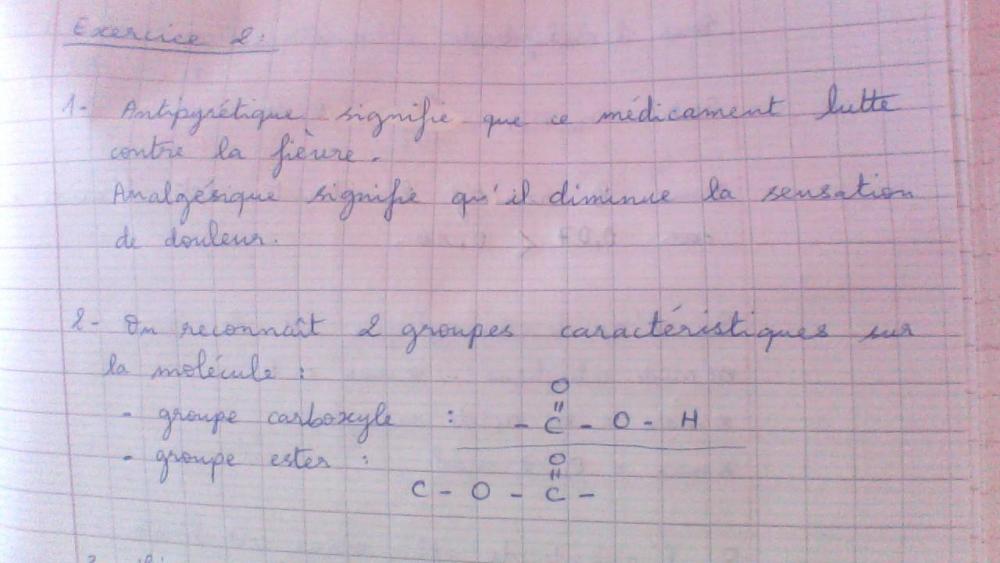 Exercice 2:
1- Antipyrétique signifie que ce médicament lutte
contre la fièvre.
Analgésique signifie qu'il diminue la sensation
de douleur.
2- On reconnaît 2 groupes caractéristiques sur
la molécule :
O
- groupe carboxyle : - C - O - H
- groupe ester :
O
C - O - C -